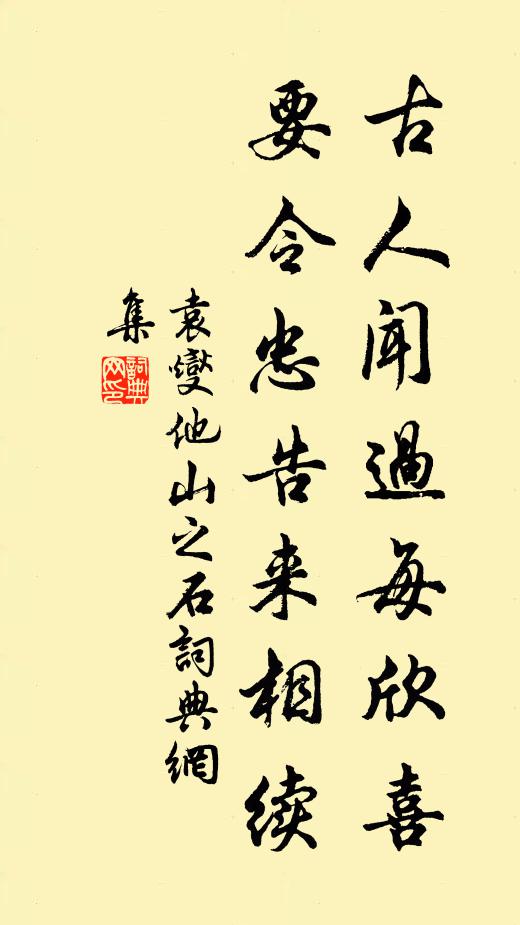 古人闻過每欣喜
要令忠告来相续
袁燮他山之石詞典網
集
詞典
网印